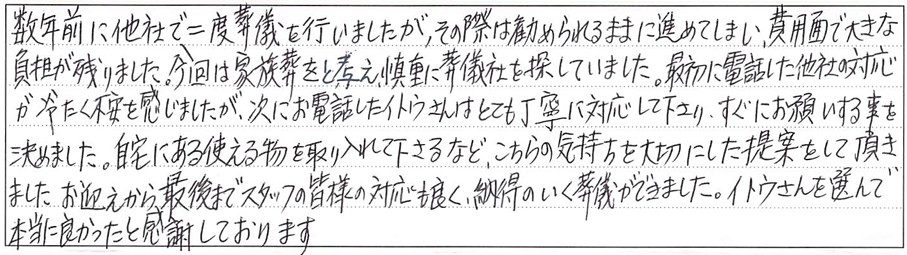 数年前に他社で二度葬儀を行いましたが、その際は勧められるままに進めてしまい、費用面で大きな
負担が残りました。今回は家族葬をと考え、慎重に葬儀社を探していました。最初に電話した他社の対応
が冷たく不安を感じましたが、次にお電話したイトウさんはとても丁寧に対応して下さり、すぐにお願いする事を
決めました。自宅にある使える物を取り入れて下さるなど、こちらの気持ちを大切にした提案をして頂き
ました。お迎えから最後までスタッフの皆様の対応も良く、納得のいく葬儀ができました。イトウさんを選んで
本当に良かったと感謝しております